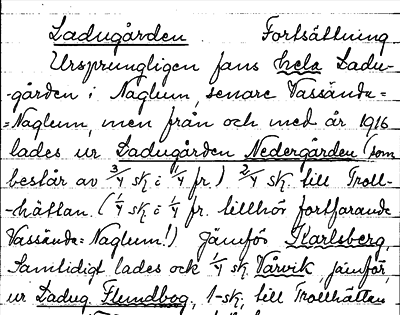 Ladugården Fortsättning
Ursprungligen fans hela Ladu-
-gården i Naglum, senare Vassända=
=Naglum, men från och med år 1916
lades ur Ladugården Nedergården (som
består av 3/4 sk i 1/4 fr.) 2/4 sk. till Troll-
-hättan. (1/4 sk i 1/4 fr. tillhör fortfarande
Vassända=Naglum!) Jämför Karlsberg,
Samtidigt lades ock 1/4 sk. Vårvik, jämför,
ur Ladug. Flundbog, 1-sk, till Trollhättan